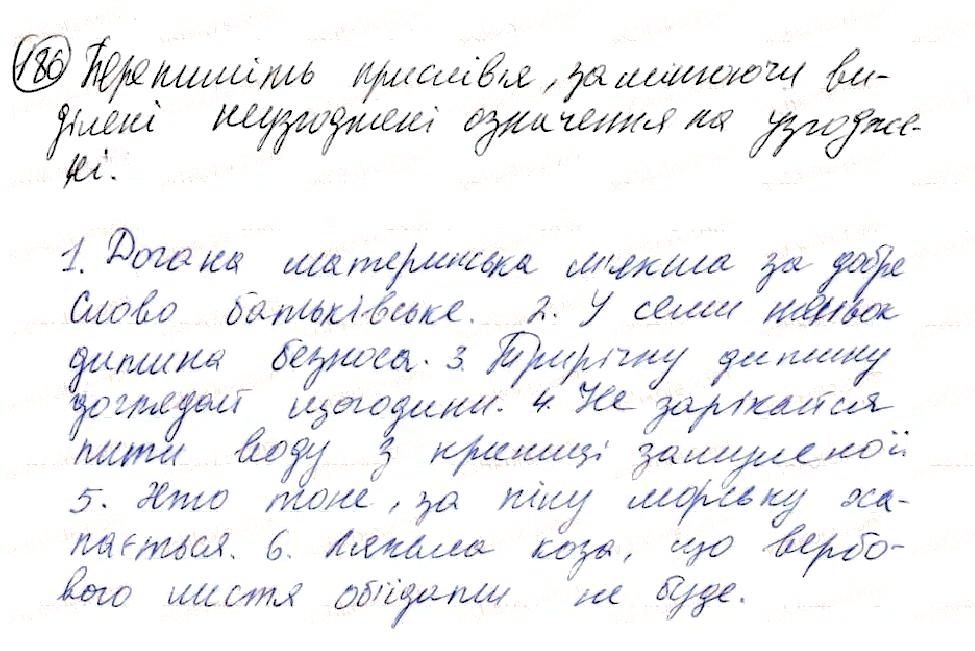 186 Перепишіть прислівя, замінюючи ви-
ділені неузгоджені означення на узгодже-
ні.
1. Догана материнська мякша за добре
слово батьківське. 2. У семи няньок
дитина безноса. 3. Трирічну дитину
доглядай щогодини. 4. Не зарікайся
пити воду з криниці замуленой
5. Хто тоне, за піну морську ха-
пається. 6. Лякала коза, що вербо-
вого листя обїдати не буде.